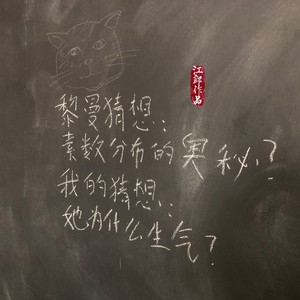 黎曼猜想：
素数分布的奥秘？
我的猜想：
她为什么生气？
江郎作品